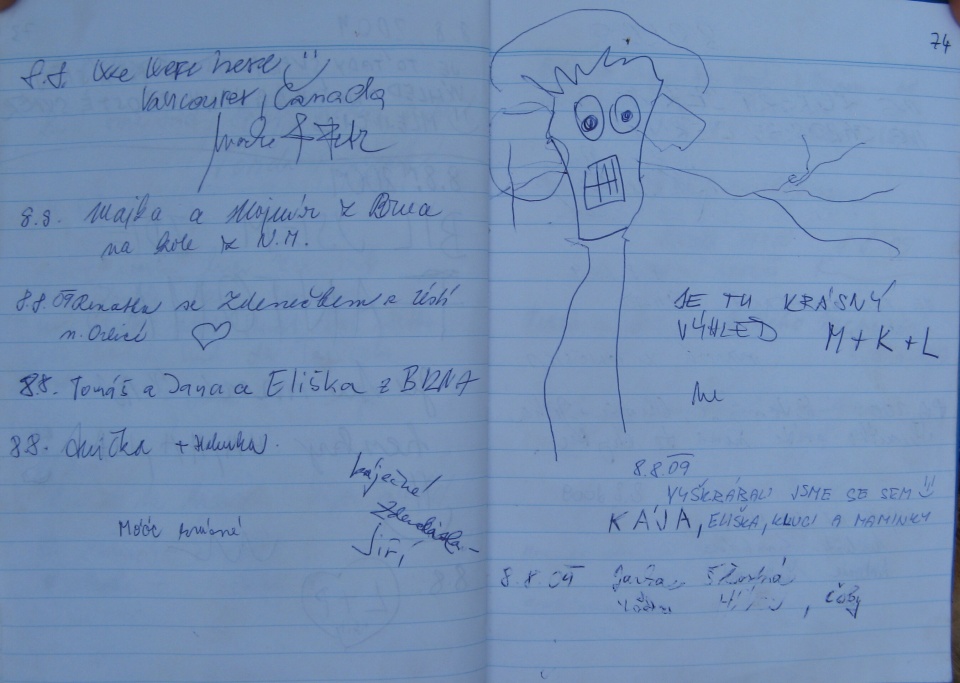 8.8. We were here
Vancouver, Canada
8.8. Majka a Mojmír z Brna
na kole z N.M.
8.8.09 Renatka se Zdenečkem z Ústí
n. Orlicí
8.8. Tomáš a Jana a Eliška z BRNA
8.8. Anička + Helenka.
báječné
Jiří
Móóc krásné
74
JE TU KRÁSNÝ
VÝHLED M+K+L
8.8.09
VYŠKRÁBALI JSME SE SEM
KÁJA, ELIŠKA, KLUCI A MAMINKY
8 8 09